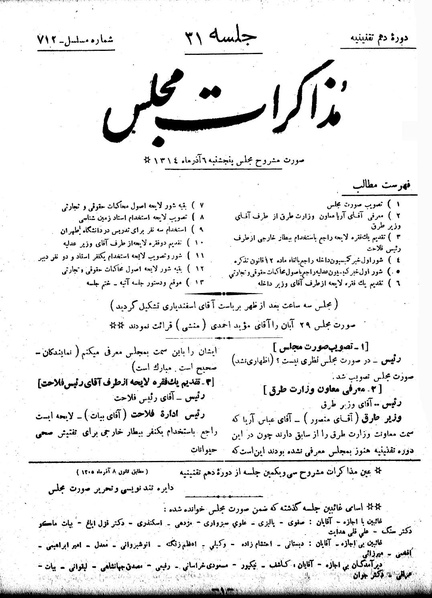 دورهٔ دهم تقنینیه
جلسه ۳۱
شماره مسلسل - ۷۱۲
مذاکرات مجلس
صورت مشروح مجلس پنجشنبه ۶ آذر ماه ۱۳۱۴ ※
فهرست مطالب
۱ ) تصویب صورت مجلس
۲ ) معرفی آقای آریا معاون وزارت طرق از طرف آقای وزیر طرق
۳ ) تقدیم یک فقره لایحه راجع باستخدام بیطار خارجی از طرف رئیس فلاحت
۴ ) شور اول خبر کمیسیون داخله راجع بالغاء ماده ۱۲ قانون تذکره
۵ ) شور اول خبر کمیسیون عدلیه راجع باصول محاکمات حقوقی و تجارتی
۶ ) تقدیم یک فقره لایحه از طرف آقای وزیر داخله
۷ ) بقیه شور لایحه اصول محاکمات حقوقی و تجارتی
۸ ) تصویب لایحه استخدام استاد زمین شناسی
۹ ) استخدام سه نفر برای تدریس در دانشگاه طهران
۱۰ ) تقدیم دو فقره لایحه از طرف آقای وزیر عدلیه
۱۱ ) شور و تصویب لایحه استخدام یکنفر استاد و دو نفر دبیر
۱۲ ) بقیه شور لایحه اصول محاکمات حقوقی و تجارتی
۱۳ ) موقع و دستور جلسه آتیه - ختم جلسه
( مجلس سه ساعت بعد از ظهر بریاست آقای اسفندیاری تشکیل گردید )
صورت مجلس ۲۹ آبان را آقای مؤید احمدی (منشی) قرائت نمودند ※※
[ ۱ - تصویب صورت مجلس ]
رئیس - در صورت مجلس نظری نیست ؟ (اظهاری نشد)
صورت مجلس تصویب شد.
[ ۲ - معرفی معاون وزارت طرق ]
رئیس - آقای وزیر طرق
وزیر طرق (آقای منصور) - آقای عباس آریا که
سمت معاونت وزارت طرق را از سابق دارند چون در این
دوره تقنینیه هنوز بمجلس معرفی نشده بودند این است که
ایشان را باین سمت بمجلس معرفی میکنم (نمایندگان -
صحیح است . مبارک است)
[۳- تقدیم یک فقره لایحه از طرف آقای رئیس فلاحت]
رئیس - آقای رئیس فلاحت
رئیس ادارهٔ فلاحت (آقای بیات) - لایحه ایست
راجع باستخدام یکنفر بیطار خارجی برای تفتیش صحی
حیوانات
※ عین مذاکرات مشروح سی و یکمین جلسه از دورهٔ دهم تقنینیه (مطابق قانون ۸ آذر ماه ۱۳۰۵)
دایره تند نویسی و تحریر صورت مجلس
※※ اسامی غائبین جلسه گذشته که ضمن صورت مجلس خوانده شده :
غائبین با اجازه - آقایان : صفوی - پالیزی - علوی سبزواری - مژدهی - اسکندری - دکتر قزل ایاغ - بیات ماکو
دکتر سنگ - علی قلی هدایت
غائبین بی اجازه - آقایان : دبستانی - احتشام زاده - وکیلی - اعظم زنگنه - انوشیروانی - معدل - امیر ابراهیمی -
افخمی - میرزائی
دیر آمدگان بی اجازه - آقایان : کاشف - نیکپور - مسعودی خراسانی - رئیسی - مصدق جهانشاهی - لیقوانی - بیات -
دکتر جوان